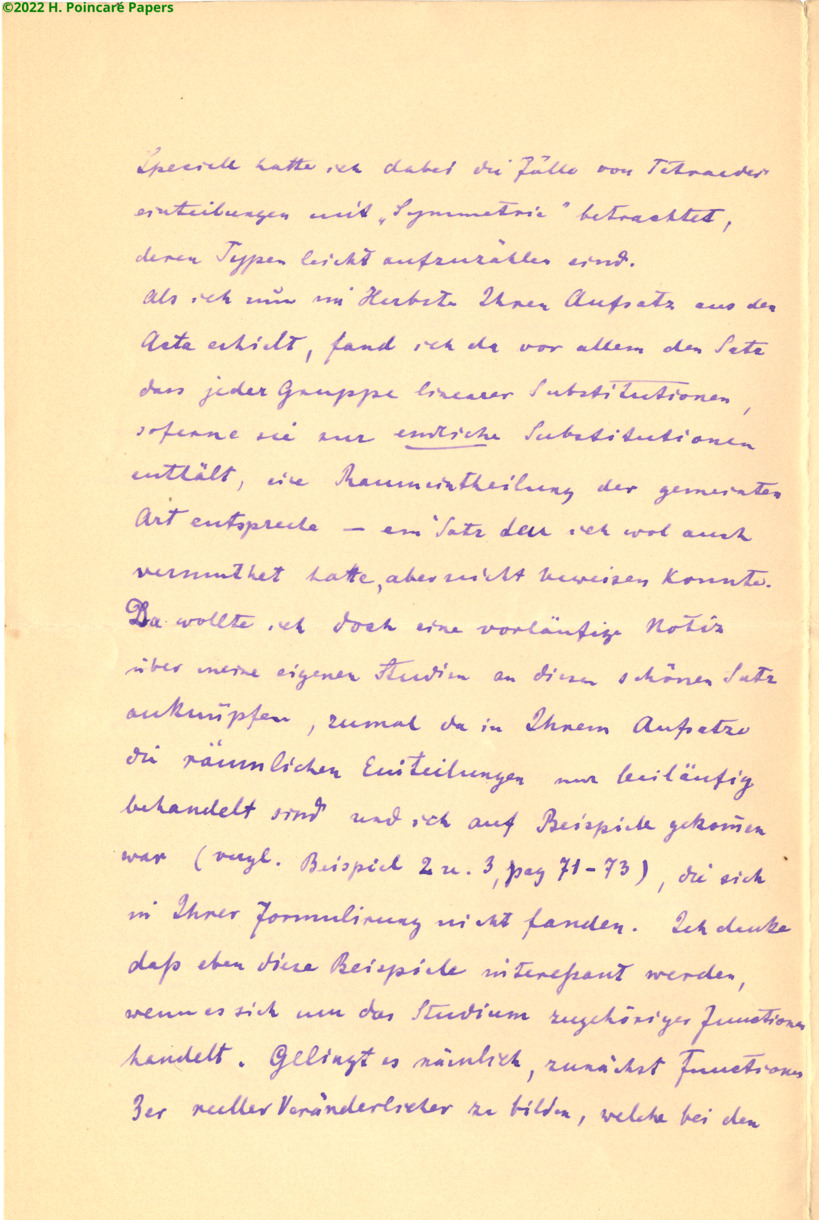 ©2022 H. Poincaré Papers
Speciell hatte ich dabei die Fälle von Tetraeder
einteilungen mit „Symmetrie“ betrachtet,
deren Typen leicht aufzuzählen sind.
Als ich nun im Herbste Ihren Aufsatz aus den
Acta erhielt, fand ich da vor allem den Satz
dass jeder Gruppe linearer Substitutionen,
soferne sie nur endliche Substitutionen
enthält, eine Raumeintheilung der gemeinten
Art entspreche — ein Satz den ich wol auch
vermuthet hatte, aber nicht beweisen konnte.
Da wollte ich doch eine vorläufige Notiz
über meine eigenen Studien an diesen schönen Satz
anknüpfen, zumal da in Ihrem Aufsatze
die räumlichen Einteilungen nur beiläufig
behandelt sind und ich auf Beispiele gekom̄en
war (vergl. Beispiel 2 u. 3, pag 71–73), die sich
in Ihrer Formulirung nicht fanden. Ich denke
daß eben diese Beispiele intereßant werden,
wenn es sich um das Studium zugehöriger Functionen
handelt. Gelingt es nämlich, zunächst Functionen
3er reeller Veränderlicher zu bilden, welche bei den